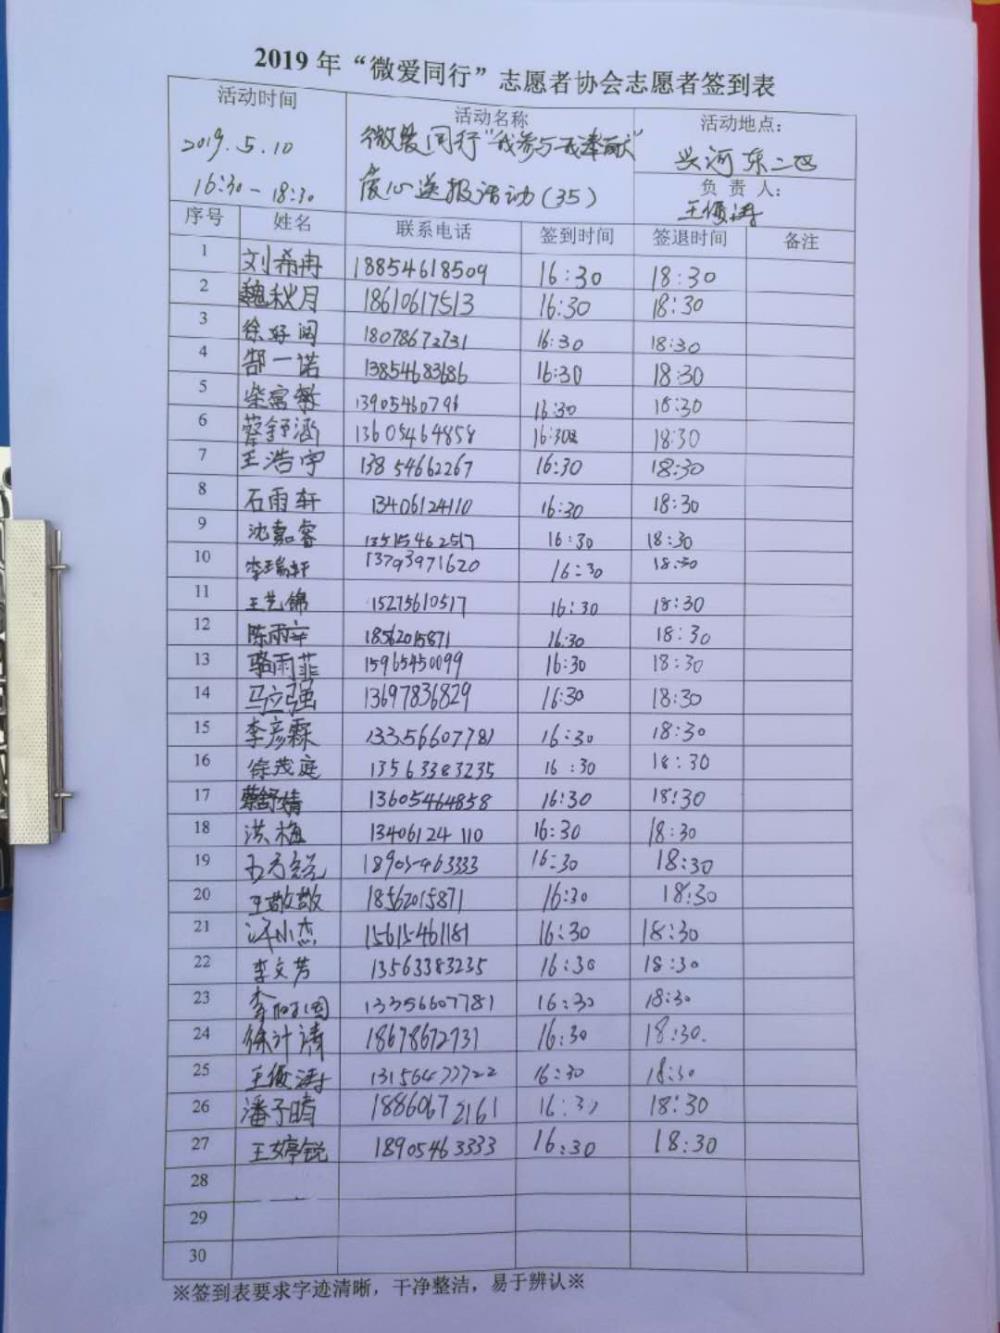 2019 年“微爱同行”志愿者协会志愿者签到表
活动时间
2019.5.10
16:30-18:30
活动名称
微爱同行"我参与我奉献"
爱心送报活动(35)
活动地点:
兴河东二区
负 责 人:
王俊涛
序号 姓名 联系电话 签到时间 签退时间 备注
1 刘希冉 18854618509 16:30 18:30
2 魏秋月 18610617513 16:30 18:30
3 徐好阅 18078672731 16:30 18:30
4 郜一诺 13854683686 16:30 18:30
5 柴富 1390546079 16:30 18:30
6 蔡舒涵 13605464858 16:30 18:30
7 王浩宇 13854662267 16:30 18:30
8 石雨轩 13406124110 16:30 18:30
9 沈嘉睿 13515462517 16:30 18:30
10 李瑞轩 13793971620 16:30 18:30
11 王艺锦 15275610517 16:30 18:30
12 陈雨辛 18562015871 16:30 18:30
13 骆雨菲 15965450099 16:30 18:30
14 马立强 13697836829 16:30 18:30
15 李彦霖 13356607781 16:30 18:30
16 徐茂庭 13563383235 16:30 18:30
17 蔡舒婧 13605464858 16:30 18:30
18 洪梅 13406124110 16:30 18:30
19 18905463333 16:30 18:30
20 王敬敬 18562015871 16:30 18:30
21 许小杰 15615461181 16:30 18:30
22 李文芳 13563383235 16:30 18:30
23 李 13356607781 16:30 18:30
24 徐计清 18678672731 16:30 18:30.
25 王俊涛 13156477722 16:30 18:30
26 潘予晴 18860672161 16:30 18:30
27 王婷锐 18905463333 16:30 18:30
28
29
30
※签到表要求字迹清晰，干净整洁，易于辨认※